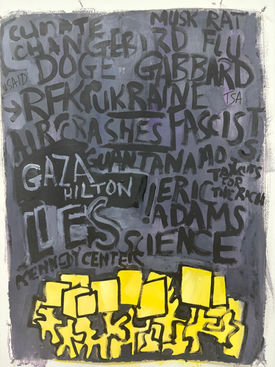 CLIMATE MUSK RAT
CHANGE BIRD FLU
DOGE GABBARD
USAID
RFK UKRAINE TSA
AIR CRASHES FASCIST
GUANTANAMO
GAZA
HILTON
TAX CUTS
FOR
THE RICH
LIES !ERIC
ADAMS
SCIENCE
KENNEDY CENTER